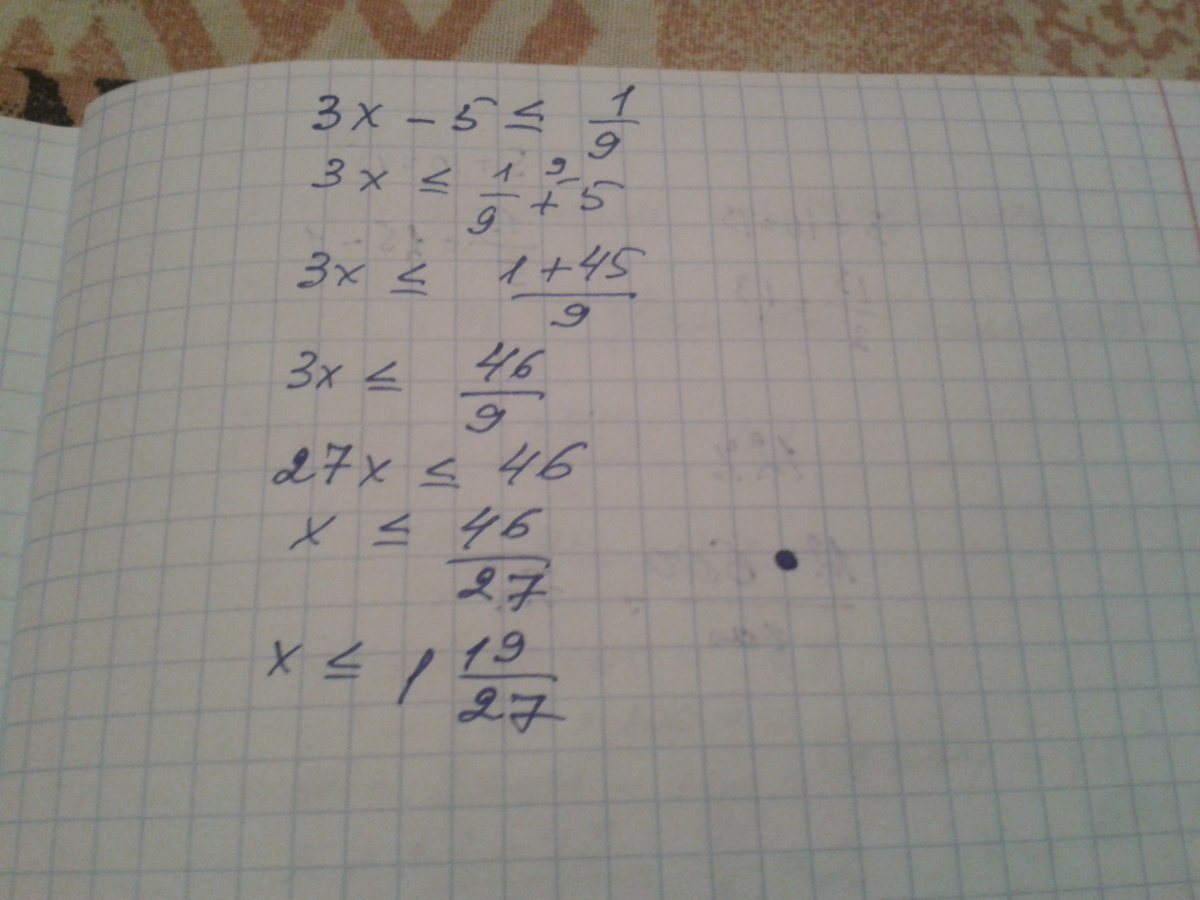 3x - 5 ≤ 1/9
3x ≤ 1/9 + 5 9
3x ≤ (1 + 45)/9
3x ≤ 46/9
27x ≤ 46
x ≤ 46/27
x ≤ 1 19/27